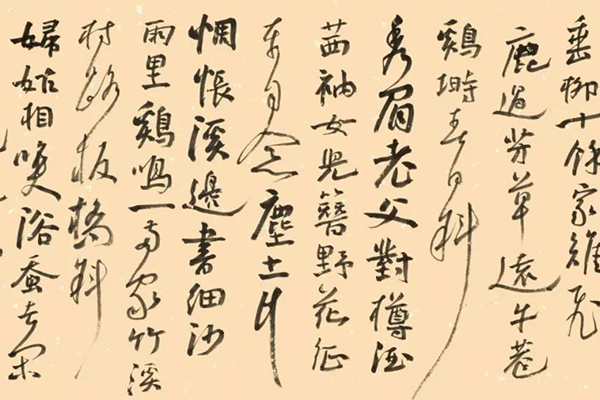 垂柳十餘家雉飛
鹿過芳草遠牛巷
鷄塒春日斜
秀眉老父對樽酒
茜袖女兒簪野花征
車自念塵土計
惆悵溪邊書細沙
雨里鷄鳴一兩家竹溪
村路板橋斜
婦姑相喚浴蠶去閑